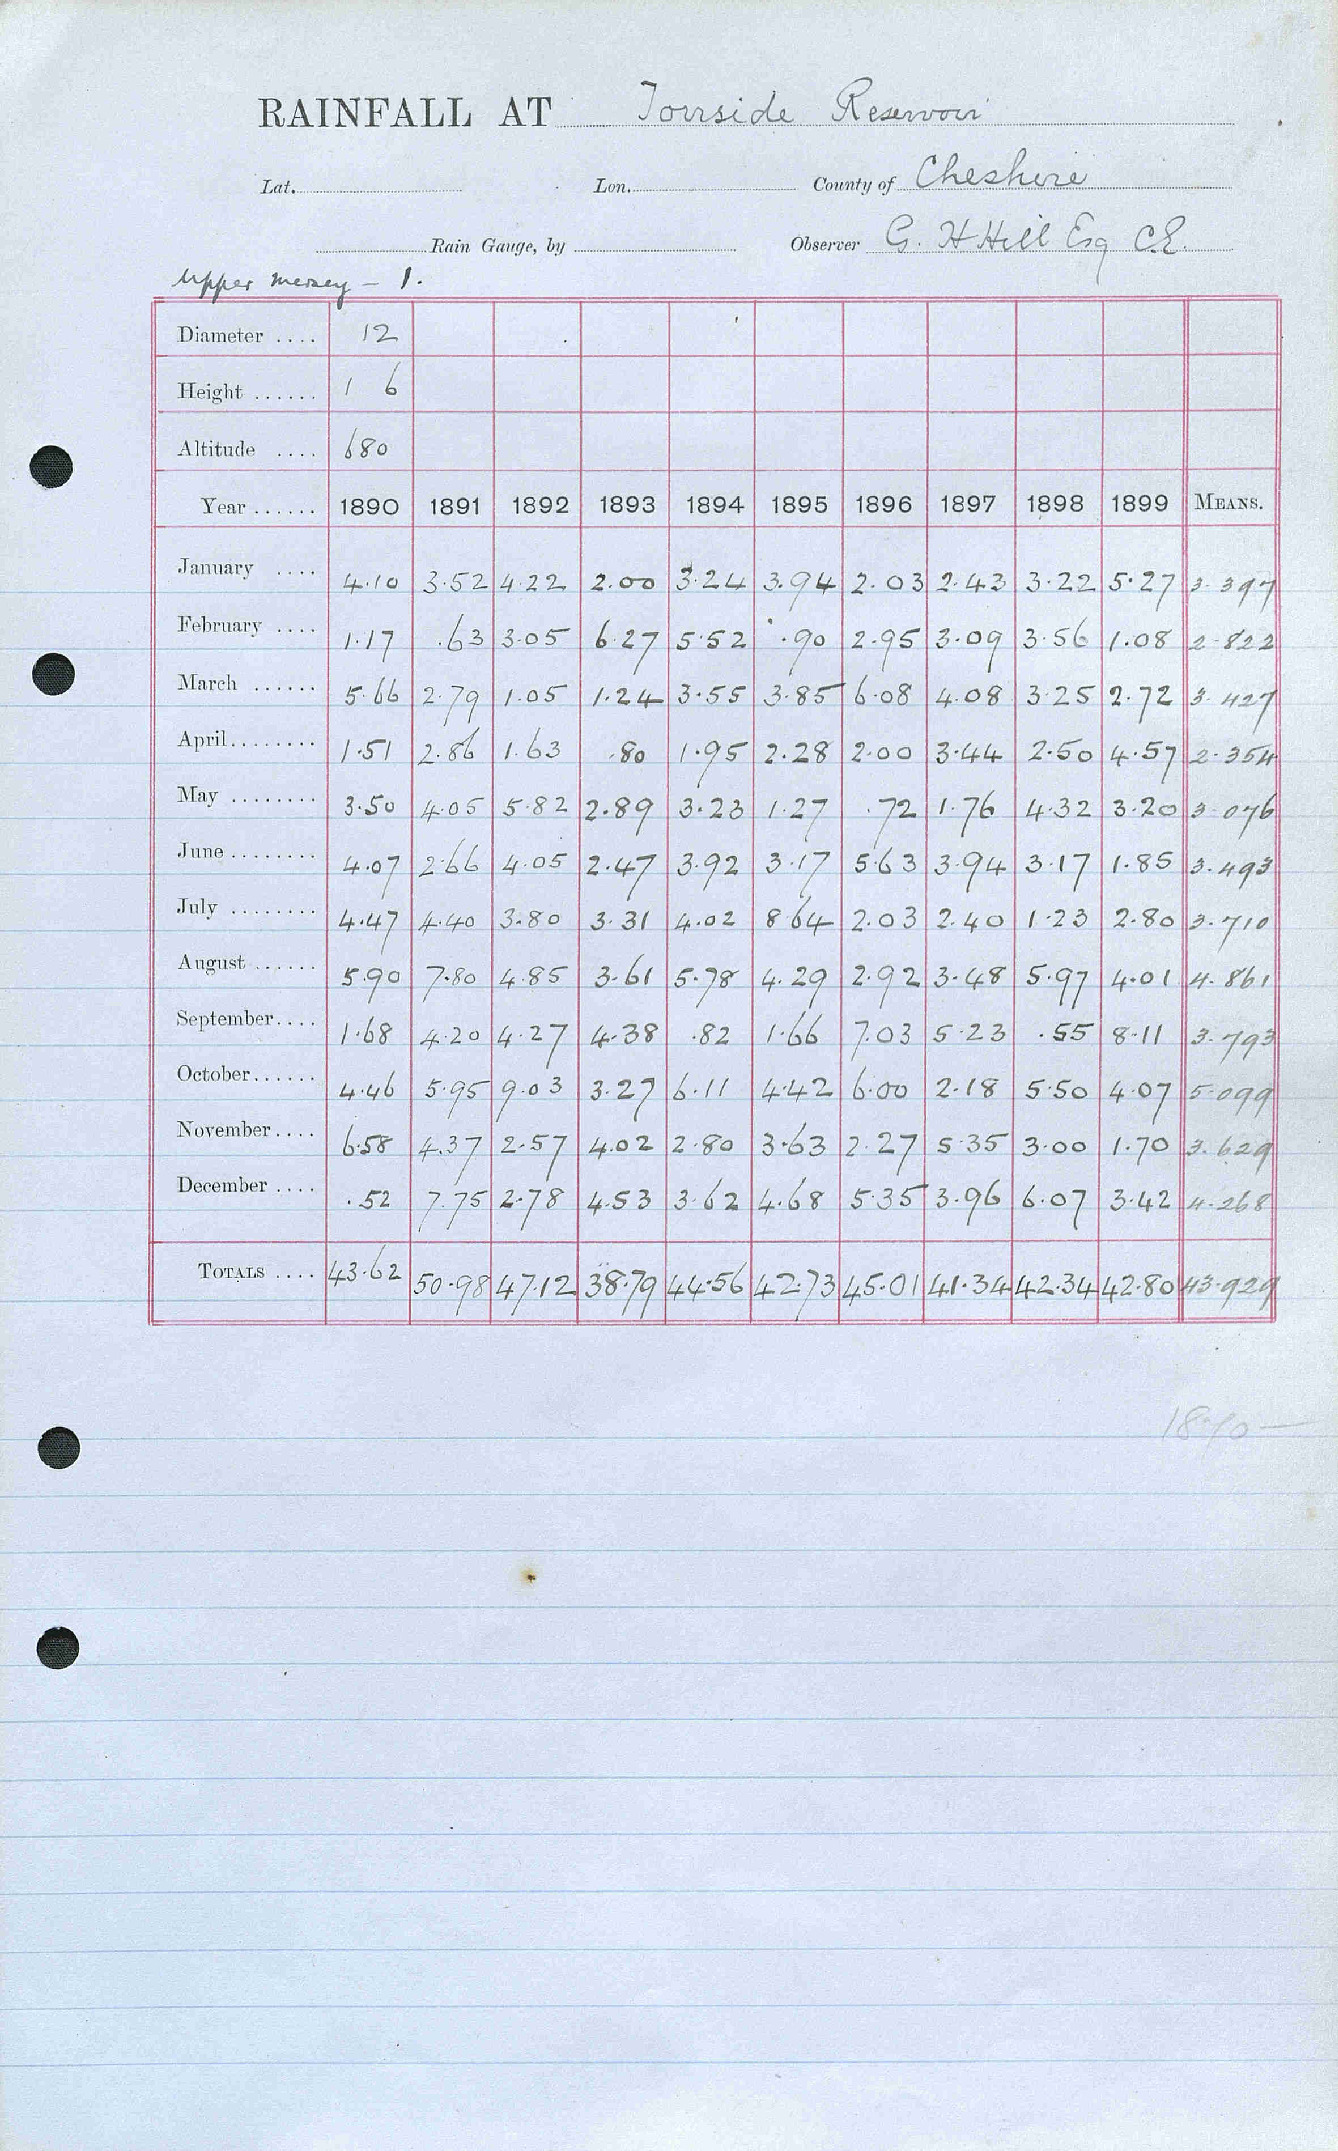 RAINFALL AT Torrside Reservoir
Lat. Lon. County of Cheshire
Rain Gauge, by Observer G. H Hill Esq C.E.
Upper Mersey – 1.
Diameter .... 12
Height ...... 1 6
Altitude .... 680
Year ...... 1890 1891 1892 1893 1894 1895 1896 1897 1898 1899 MEANS.
January .... 4.10 3.52 4.22 2.00 3.24 3.94 2.03 2.43 3.22 5.27 3.397
February .... 1.17 .63 3.05 6.27 5.52 .90 2.95 3.09 3.56 1.08 2.822
March ...... 5.66 2.79 1.05 1.24 3.55 3.85 6.08 4.08 3.25 2.72 3.427
April........ 1.51 2.86 1.63 .80 1.95 2.28 2.00 3.44 2.50 4.57 2.354
May ........ 3.50 4.05 5.82 2.89 3.23 1.27 .72 1.76 4.32 3.20 3.076
June ........ 4.07 2.66 4.05 2.47 3.92 3.17 5.63 3.94 3.17 1.85 3.493
July ........ 4.47 4.40 3.80 3.31 4.02 8.64 2.03 2.40 1.23 2.80 3.710
August ...... 5.90 7.80 4.85 3.61 5.78 4.29 2.92 3.48 5.97 4.01 4.861
September.... 1.68 4.20 4.27 4.38 .82 1.66 7.03 5.23 .55 8.11 3.793
October...... 4.46 5.95 9.03 3.27 6.11 4.42 6.00 2.18 5.50 4.07 5.099
November.... 6.58 4.37 2.57 4.02 2.80 3.63 2.27 5.35 3.00 1.70 3.629
December .... .52 7.75 2.78 4.53 3.62 4.68 5.35 3.96 6.07 3.42 4.268
TOTALS .... 43.62 50.98 47.12 38.79 44.56 42.73 45.01 41.34 42.34 42.80 43.929
1870 —